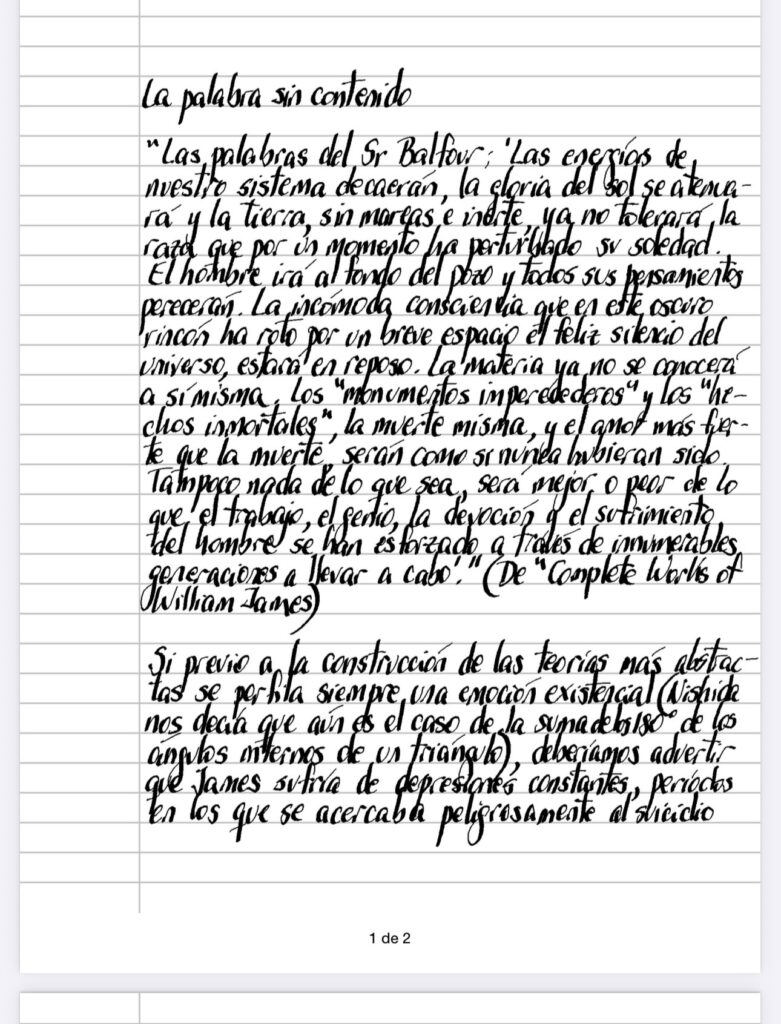 La palabra sin contenido
"Las palabras del Sr Balfour; 'Las energías de
nuestro sistema decaerán, la gloria del sol se atenua-
rá y la tierra, sin mareas e inerte, ya no tolerará la
raza que por un momento ha perturbado su soledad.
El hombre irá al fondo del pozo y todos sus pensamientos
perecerán. La incómoda consciencia que en este oscuro
rincón ha roto por un breve espacio el feliz silencio del
universo, estará en reposo. La materia ya no se conocerá
a sí misma. Los "monumentos imperecederos" y los "he-
chos inmortales", la muerte misma, y el amor más fuer-
te que la muerte, serán como si nunca hubieran sido.
Tampoco nada de lo que sea, será mejor o peor de lo
que el trabajo, el genio, la devoción y el sufrimiento
del hombre se han esforzado a través de innumerables
generaciones a llevar a cabo'." (De "Complete Works of
William James)
Si previo a la construcción de las teorías más abstrac-
tas se perfila siempre una emoción existencial (Nishida
nos decía que aún es el caso de la suma de los 180° de los
ángulos internos de un triángulo), deberíamos advertir
que James sufría de depresiones constantes, periodos
en los que se acercaba peligrosamente al suicidio
1 de 2